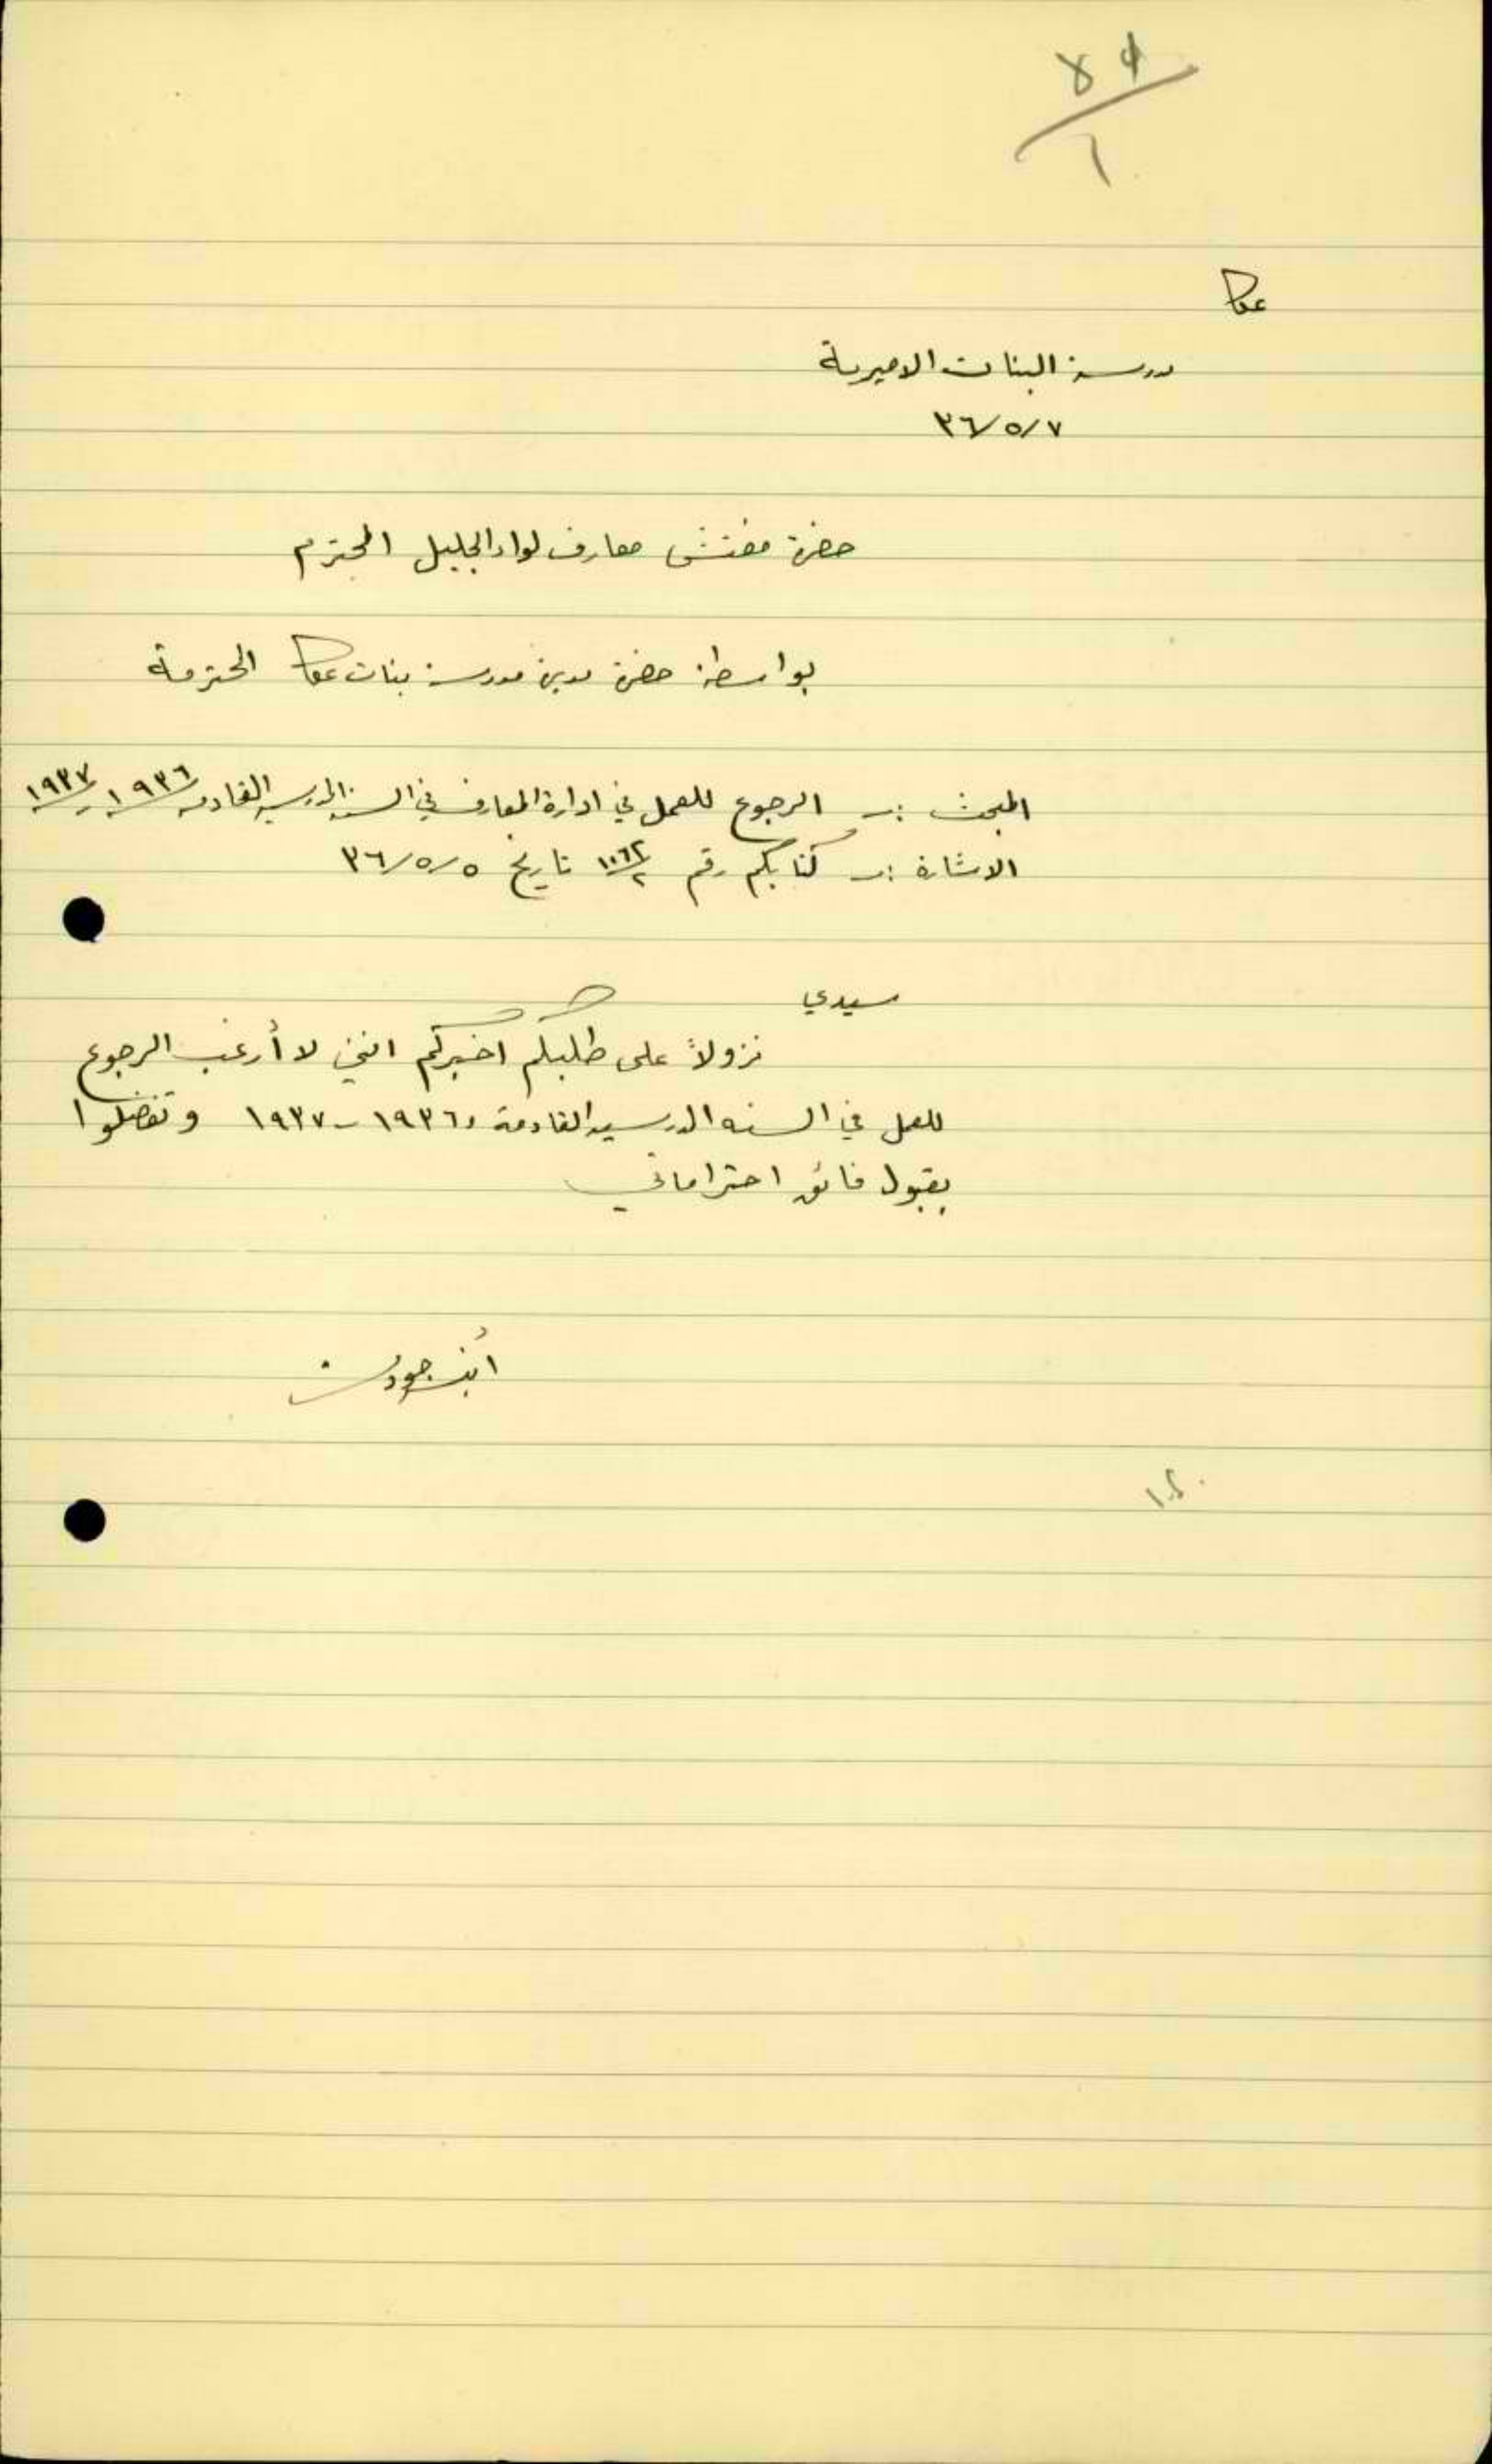 عكا
مدرسة البنات الاميرية
٣٦/٥/٧
حضرة مفتش معارف لواء الجليل المحترم
بواسطة حضرة مديرة مدرسة بنات عكا المحترمة
المبحث :- الرجوع للعمل في ادارة المعارف في السنة الدرسية القادمة ١٩٣٦ - ١٩٣٧
الاشارة :- كتابكم رقم تاريخ ٣٦/٥/٥
سيدي
نزولاً على طلبكم اخبركم انني لا أرغب الرجوع
للعمل في السنه الدرسيه القادمة ١٩٣٦ - ١٩٣٧ وتفضلوا
بقبول فائق احتراماتي
جودت